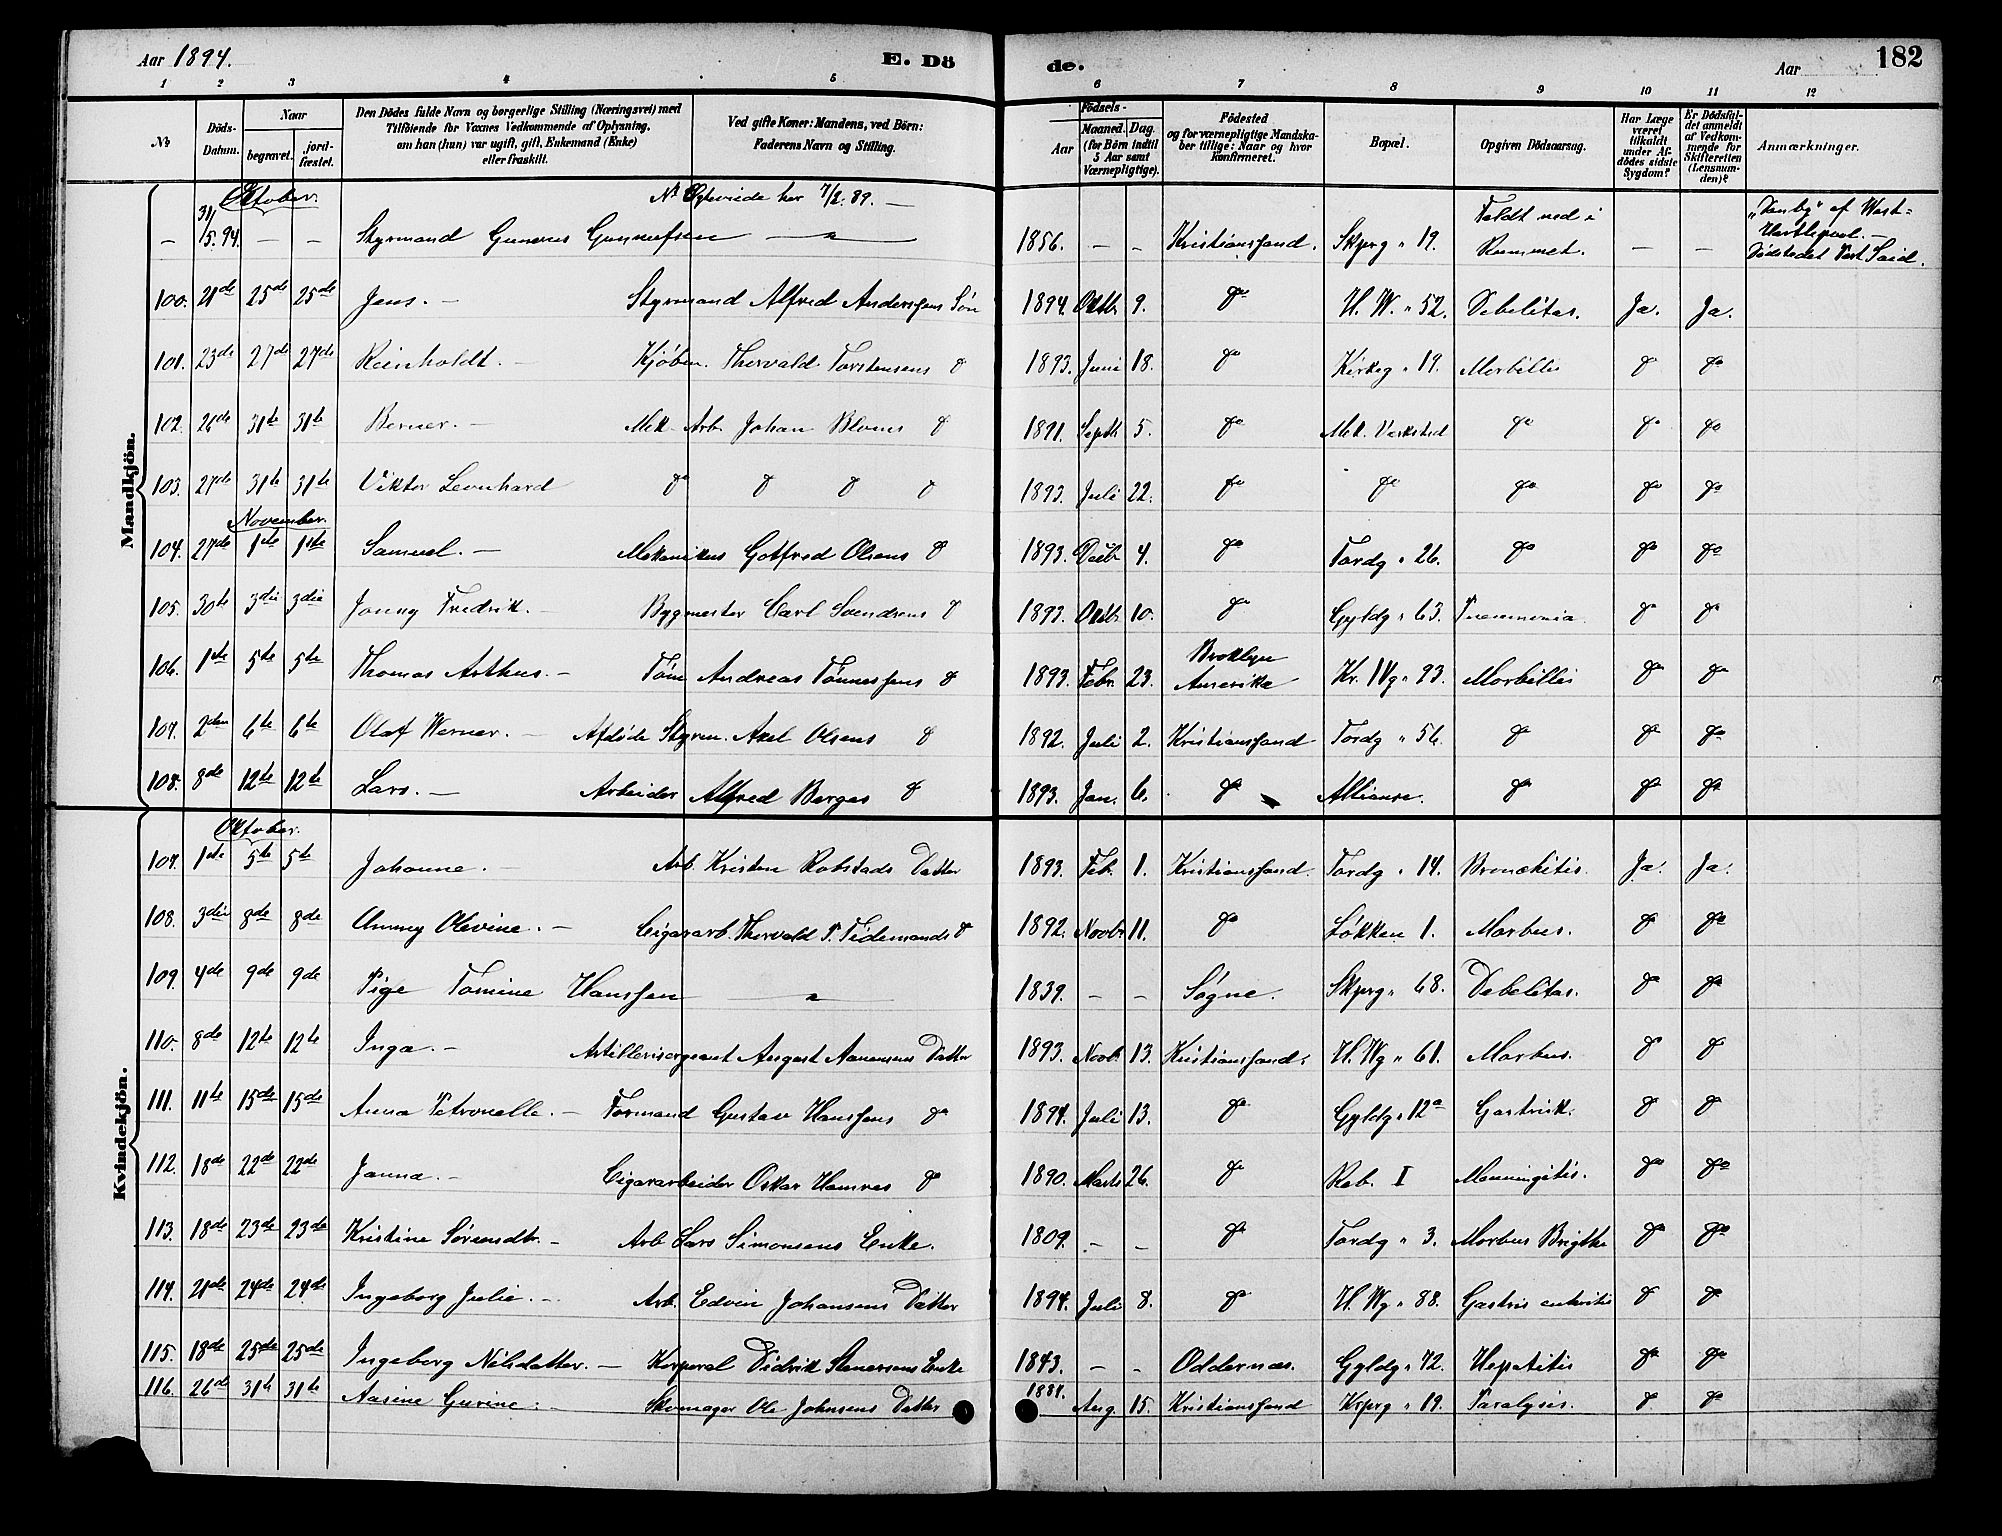 Aar 1894. E. Dö de. Aar 182
1 2 3 4 5 6 7 8 9 10 11 12
No Döds-Datum. Naar begravet. jordfæstet. Den Dödes fulde Navn og borgerlige Stilling (Næringsvei) med Tilföiende for Voxnes Vedkommende af Oplysning, om han (hun) var ugift, gift, Enkemand (Enke) eller fraskilt. Ved gifte Koner: Mandens, ved Börn: Faderens Navn og Stilling. Födsels- Aar Maaned. Dag. (for Börn indtil 5 Aar samt Værnepligtige). Födested og for værnepligtige Mandskaber tillige: Naar og hvor konfirmeret. Bopæl. Opgiven Dödsaarsag. Har Læge været tilkaldt under Afdödes sidste Sygdom? Er Dödsfaldet anmeldt af Vedkommende for Skifteretten (Lensmanden)? Anmærkninger.
Mandkjön.
Oktober.
31/5.94. — — Styrmand Gunnvus Gunnufsen — 1856. — — Kristianssand. Skprg " 19. Faldt ned i Rummet. — — Dødstedet Port Said.
100. 21de 25de 25de Jens. — Styrmand Alfred Anderssens Søn 1894. Oktbr 9. do H. W. " 52. Debelitas. Ja. Ja.
101. 23de 27de 27de Reinholdt. — Kjøbm. Thorvald Torstensens do 1893. Juni 18. do Kirkeg " 19. Morbillis do do
102. 26de 31te 31te Berner. — Mek. Arb. Johan Bloms do 1891. Septb 5. do Mek. Verksted do do do
103. 27de 31te 31te Viktor Leonhard do do do do 1893. Juli 22. do do do do do
November.
104. 27de 1ste 1ste Samuel. — Mekanikus Gotfred Olsens do 1893. Decb 4. do Tordg " 26. do do do
105. 30te 3die 3die Jonny Fredrik. — Bygmester Carl Svendsens do 1893. Oktbr 10. do Gyldg " 63. Pneumonia do do
106. 1ste 5te 5te Thomas Arthur. — Tøm Andreas Tønnessens do 1893. Febr. 23. Broklyn Amerika Kr. IVg " 93. Morbillis do do
107. 2den 6te 6te Olaf Werner. — Afdøde Styrm. Axel Olsens do 1892. Juli 2. Kristianssand Tordg " 56. do do do
108. 8de 12te 12te Lars. — Arbeider Alfred Berges do 1893. Jan. 6. do Alliance. do do do
Kvindekjön.
Oktober.
107. 1ste 5te 5te Johanne. — Arb. Kristen Robstads Datter 1893. Feb. 1. Kristianssand. Tordg " 14. Bronckitis. Ja. Ja.
108. 3die 8de 8de Anny Olevine. — Cigararb. Thorvald P. Tidemands do 1892. Novbr 11. do Løkken 1. Morbus. do do
109. 4de 9de 9de Pige Tomine Hanssen — 1839. — — Søgne. Skprg " 68. Debelitas. do do
110. 8de 12te 12te Inga. — Artillerisergeant August Aanensens Datter 1893. Novb. 13. Kristianssand. H. Wg " 61. Morbus. do do
111. 11te 15de 15de Anna Petronelle. — Formand Gustav Hanssens do 1894. Juli 13. do Gyldg " 12a Gastrisk. do do
112. 18de 22de 22de Janna. — Cigararbeider Oskar Hamres do 1890. Marts 26. do Rob. I Menningitis. do do
113. 18de 23de 23de Kristine Sørensdtr. — Arb Lars Simonsens Enke. 1809. — — do Tordg " 3. Morbus Brigthe do do
114. 21de 24de 24de Ingeborg Julie. — Arb. Edvin Johansens Datter 1894. Juli 8. do H. Wg " 88. Gastris enteritis do do
115. 18de 25de 25de Ingeborg Nilsdatter. — Korporal Didrik Stenersens Enke 1843. — — Oddernæs. Gyldg " 72. Hepatitis do do
116. 26de 31te 31te Aasine Gurine. — Skomager Ole Johnsens Datter 1884. Aug 15. Kristianssand Krprg " 19. Paralysis. do do